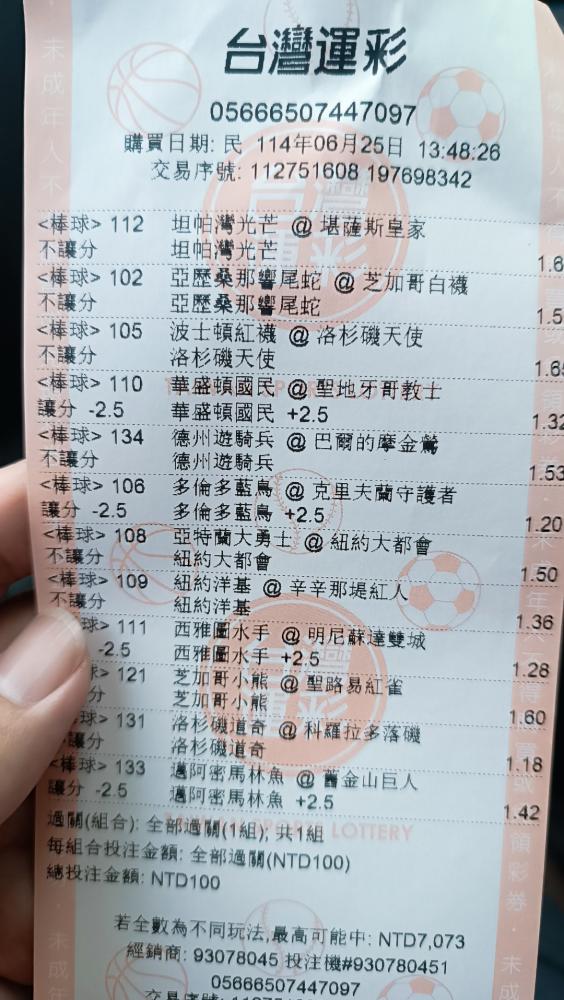 台灣運彩
05666507447097
購買日期: 民 114年06月25日 13:48:26
交易序號: 112751608 197698342
<棒球> 112 坦帕灣光芒 @ 堪薩斯皇家
不讓分 坦帕灣光芒 1.6
<棒球> 102 亞歷桑那響尾蛇 @ 芝加哥白襪
不讓分 亞歷桑那響尾蛇 1.5
<棒球> 105 波士頓紅襪 @ 洛杉磯天使
不讓分 洛杉磯天使 1.65
<棒球> 110 華盛頓國民 @ 聖地牙哥教士
讓分 -2.5 華盛頓國民 +2.5 1.32
<棒球> 134 德州遊騎兵 @ 巴爾的摩金鶯
不讓分 德州遊騎兵 1.53
<棒球> 106 多倫多藍鳥 @ 克里夫蘭守護者
讓分 -2.5 多倫多藍鳥 +2.5 1.20
<棒球> 108 亞特蘭大勇士 @ 紐約大都會
不讓分 紐約大都會 1.50
<棒球> 109 紐約洋基 @ 辛辛那堤紅人
不讓分 紐約洋基 1.36
球> 111 西雅圖水手 @ 明尼蘇達雙城
-2.5 西雅圖水手 +2.5 1.28
球> 121 芝加哥小熊 @ 聖路易紅雀
分 芝加哥小熊 1.60
球> 131 洛杉磯道奇 @ 科羅拉多落磯
讓分 洛杉磯道奇 1.18
<棒球> 133 邁阿密馬林魚 @ 舊金山巨人
讓分 -2.5 邁阿密馬林魚 +2.5 1.42
過關(組合): 全部過關(1組); 共1組
每組合投注金額: 全部過關(NTD100)
總投注金額: NTD100
若全數為不同玩法,最高可能中: NTD7,073
經銷商: 93078045 投注機#930780451
05666507447097